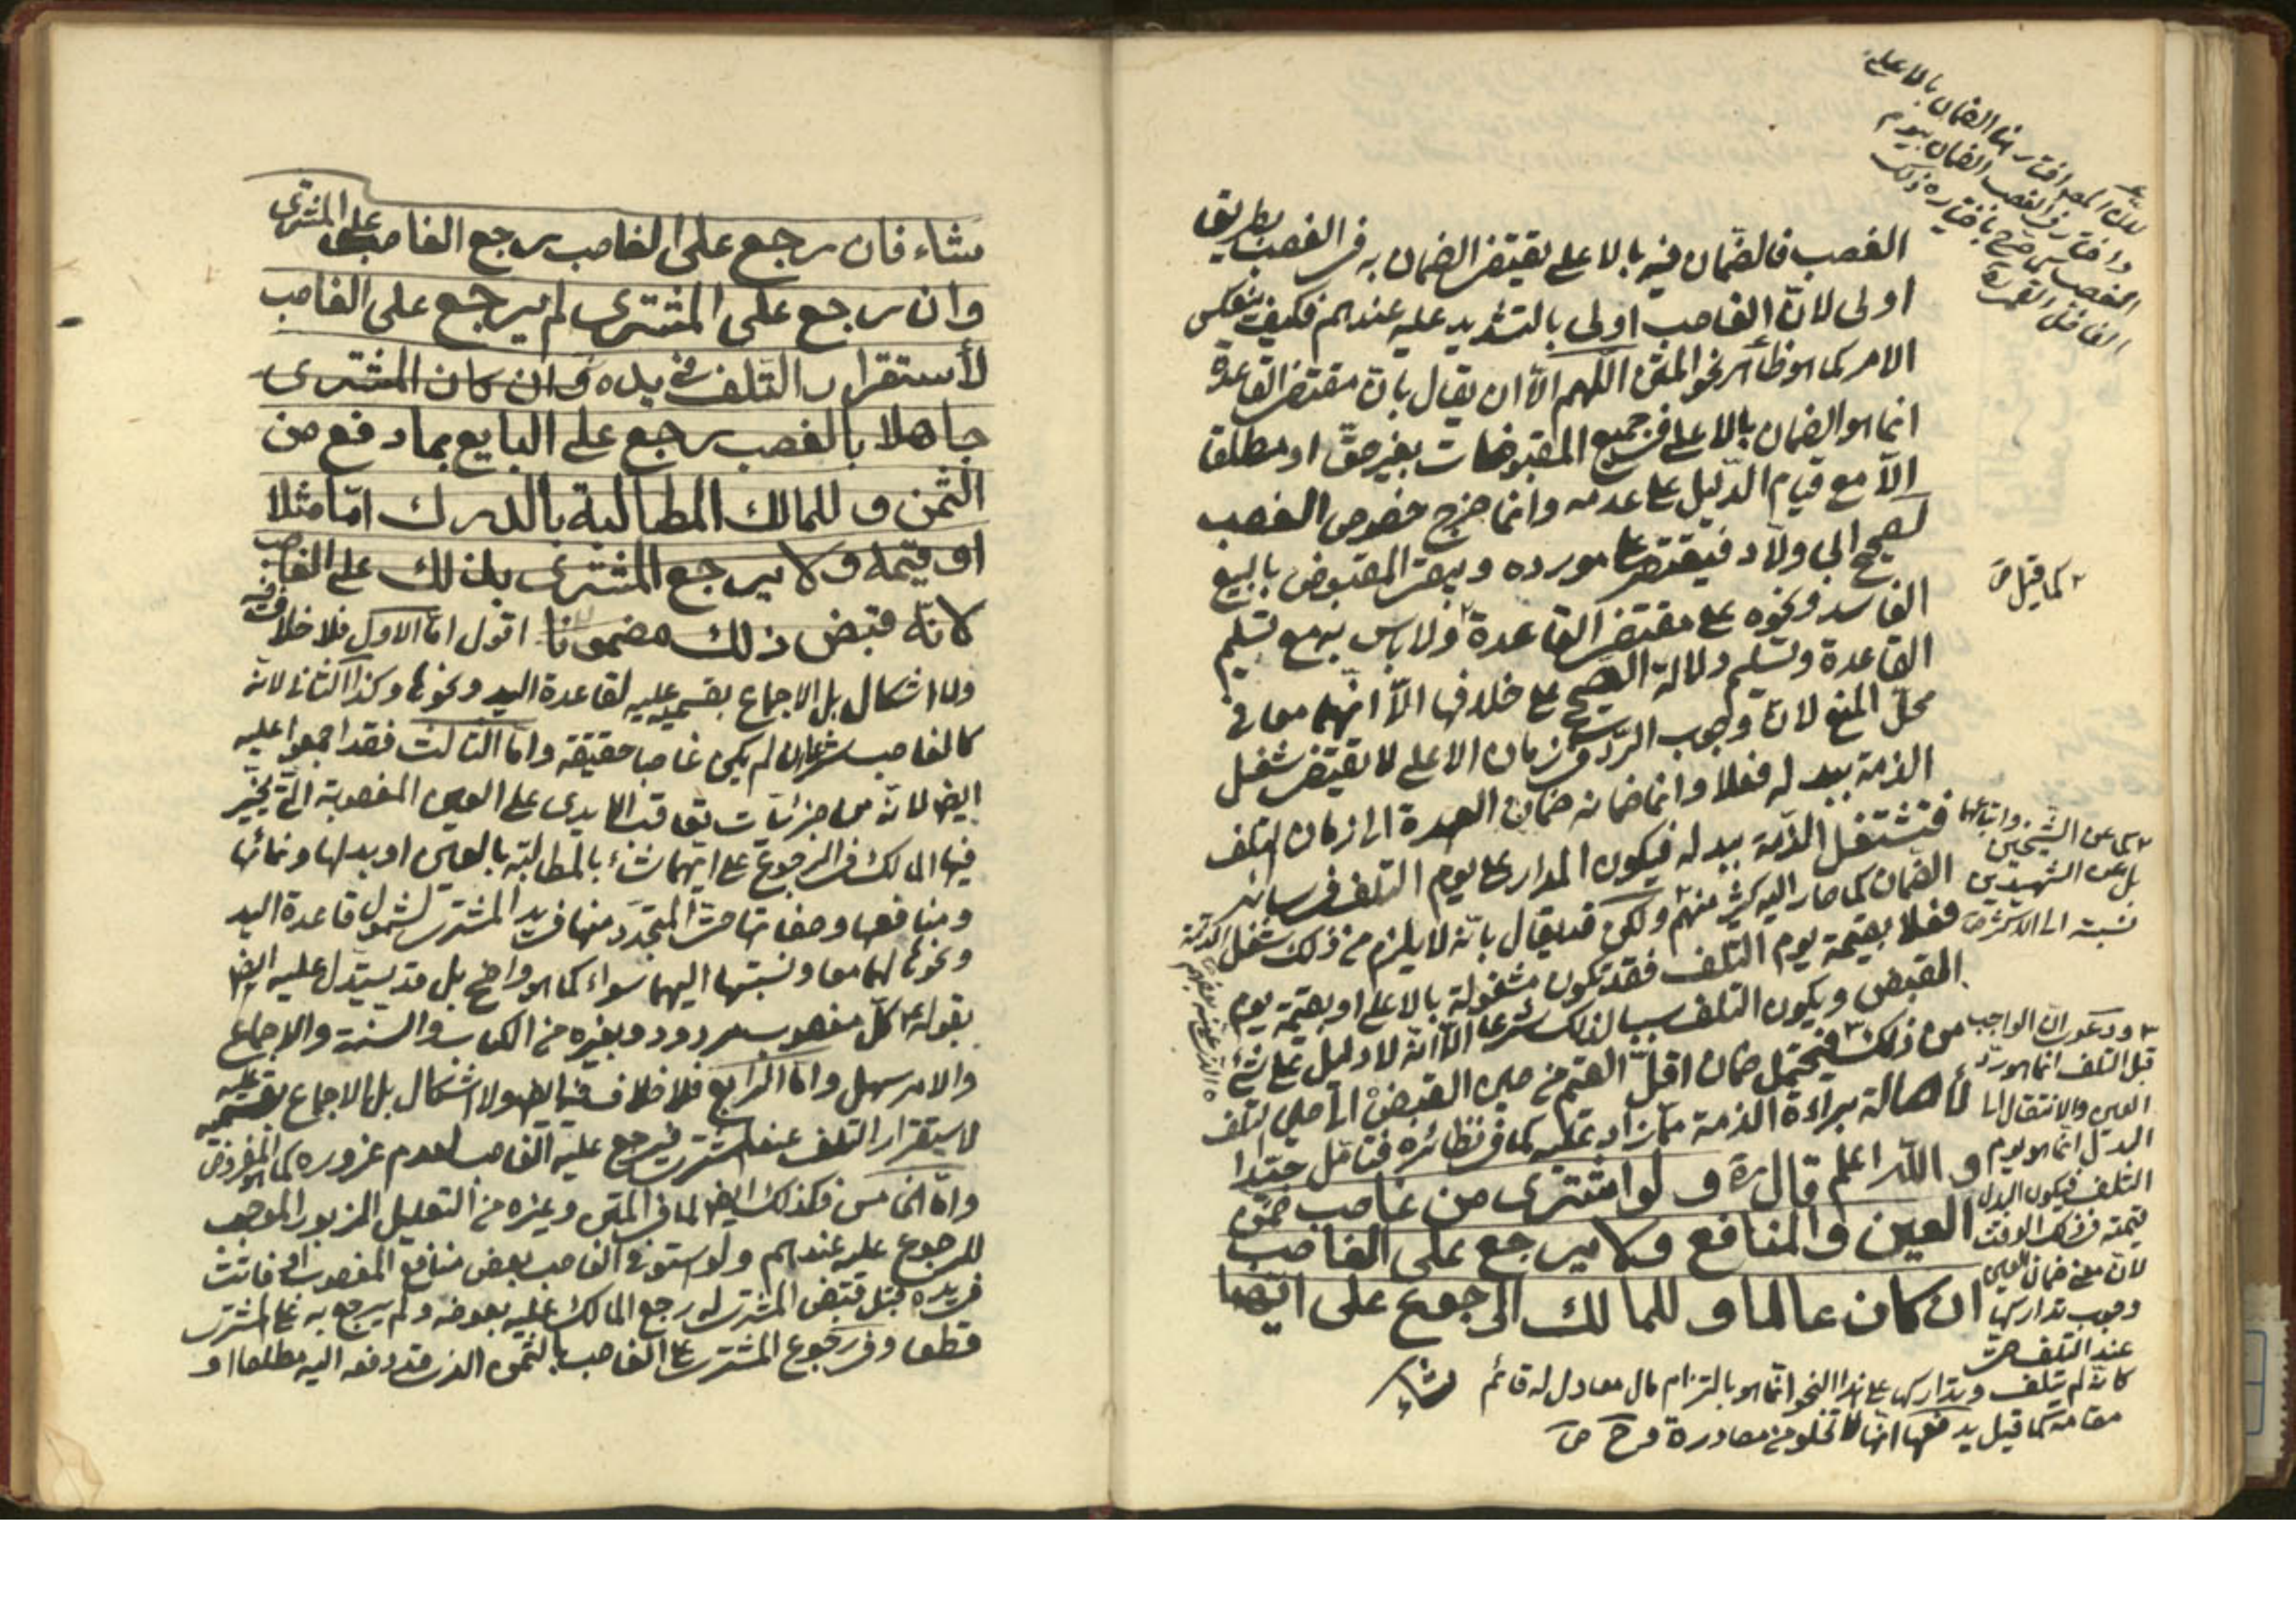 الغصب فالضمان فيه بالاعلى يقتضى الضمان به فى الغصب بطريق
اولى لانّ الغاصب اولى بالتشديد عليه عندهم فكيف ينعكس
الامر كما هو ظاهر نحو المتن اللّهم الّا ان يقال بانّ مقتضى القاعدة
انما هو الضمان بالاعلى فى جميع المقبوضات بغير حقّ او مطلقا
الّا مع قيام الدّليل على عدمه وانما خرج خصوص الغصب
لصحيح ابى ولّاد فيقتصر على مورده ويبقى المقبوض بالبيع
الفاسد ونحوه على مقتضى القاعدة ولا باس به مع تسليم
القاعدة وتسليم دلالة الصحيح على خلافها الّا انّهما معا فى
محلّ المنع لانّ وجوب الردّ فى زمان الاعلى لا يقتضى شغل
الذمة ببدله فعلا وانما ضمانه ضمان العهدة الى زمان التلف
فتشتغل الذّمة ببدله فيكون المدار على يوم التلف فى سائر
الضمان كما صار اليه كثير منهم ولكن قد يقال بانّه لا يلزم من ذلك شغل الذمّة
فعلا بقيمة يوم التلف فقد تكون مشغولة بالاعلى او بقيمة يوم
القبض ويكون التلف سببا لذلك شرعا الّا انّه لا دليل على شئ
من ذلك فيحتمل ضمان اقلّ القيم من حين القبض الى حين التلف
لاصالة براءة الذمة مما زاد عليه كما فى نظائره فتامّل جيّدا
و اللّه اعلم قال ره و لو اشترى من غاصب ضمن
العين و المنافع و لا يرجع على الغاصب
ان كان عالما و للمالك الرجوع على ايّهما
كما قيل ص
كما عن الشّيخين واتباعهما
بل عن الشهيدين
نسبته الى الاكثر ص
ودعوى انّ الواجب
قبل التلف انما هو ردّ
العين والانتقال الى
البدل انما هو يوم
التلف فيكون البدل
قيمته فى ذلك الوقت
لانّ معنى ضمان العين
وجوب تداركها
عند التلف
كانّه لم تتلف وتداركها على هذا النحو انّما هو بالتزام مال معادل له قائم
مقامه كما قيل يدفعها انّها لا تخلو من مصادرة
شاء
شاء فان رجع على الغاصب رجع الغاصب على المشترى
وان رجع على المشترى لم يرجع على الغاصب
لأستقرار التّلف فى يده و ان كان المشترى
جاهلا بالغصب رجع على البايع بما دفع من
الثّمن و للمالك المطالبة بالدرك امّا مثلا
او قيمة و لا يرجع المشترى بذلك على الغاصب
لانّه قبض ذلك مضمونا اقول امّا الاول فلا خلاف فيه
ولا اشكال بل الاجماع بقسميه عليه لقاعدة اليد ونحوها وكذا الثانى لانّه
كالغاصب شرعا وان لم يكن غاصبا حقيقة وامّا الثالث فقد اجمعوا عليه
ايضا لانّه من جزئيات تعاقب الايدى على العين المغصوبة الّتى يخيّر
فيها المالك فى الرجوع على ايّهما شاء بالمطالبة بالعين او بدلها ونمائها
ومنافعها وصفاتها حتّى المتجدّد منها فى يد المشترى لشمول قاعدة اليد
ونحوها لهما معا ونسبتها اليهما سواء كما هو واضح بل قد يستدل عليه ايضا
بقوله ع كلّ مغصوب مردود وبغيره من الكتاب والسنة والاجماع
والامر سهل وامّا الرابع فلا خلاف فيه ايضا ولا اشكال بل الاجماع بقسميه عليه
لاستقرار التلف عند المشترى فيرجع عليه الغاصب لعدم غروره كما هو المفروض
وامّا الخامس فكذلك ايضا لما فى المتن وغيره من التعليل المزبور الموجب
للرجوع عليه عندهم ولو استوفى الغاصب بعض منافع المغصوب او فاتت
فى يده قبل قبض المشترى له رجع المالك عليه بعوضه ولم يرجع به على المشترى
قطعا وفى رجوع المشترى على الغاصب بالثمن الذى قد دفعه اليه مطلقا او